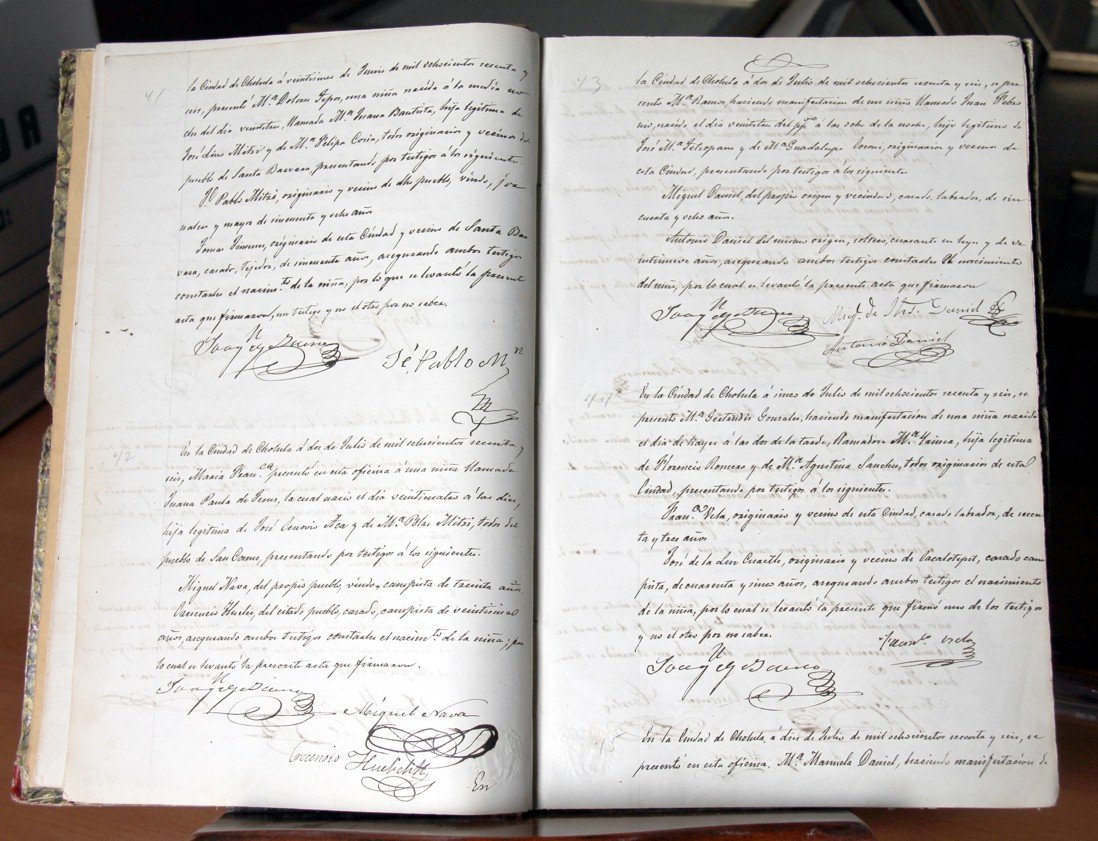 41
la Ciudad de Cholula á veintitres de Junio de mil ochocientos secenta y
seis, presentó Mª Dolores Tepos, una niña nacida á la media no
che del dia veintitres, llamada Mª Juana Bautista, hija legitima de
José dino Mitzi y de Mª Felipa Coria, todos originarios y vecinos del
pueblo de Santa Barvara presentando por testigos á los siguiente.
Pablo Mitzi, originario y vecino de dho pueblo, viudo, jor
nalero y mayor de sincuenta y ocho años
Tomas Jimenes, originario de esta Ciudad y vecino de Santa Bar
vara, casado, Tejidos, de sincuenta años, asegurando ambos testigos
constarles el nacimto de la niña, por lo que se levantó la presente
acta que firmaron, un testigo y no el otro por no saber.
Pablo M
42
En la Ciudad de Cholula á dos de Julio de mil ochocientos secenta y
seis, Maria Franca presentó en esta oficina á una niña llamada
Juana Paula de Jesus, la cual nació el dia veintiseis á las dies,
hija legitima de José Cenovio Aca y de Mª Blas Mitzi, todos del
pueblo de San Cosme, presentando por testigos á los siguiente.
Miguel Nava, del propio pueblo, viudo, campista de treinta años
del citado pueblo, casado, campista de veintiseis
años, asegurando ambos testigos constarles el nacimto de la niña; por
lo cual se levantó la presente acta que firmaron.
Miguel Nava
En
43
la Ciudad de Cholula á dos de Julio de mil ochocientos secenta y seis, se pre
sentó Mª Ramos, haciendo manifestacion de un niño llamado Juan
nacido el dia veintitres del pp. á las ocho de la noche, hijo legitimo de
José Mª y de Mª Guadalupe originarios y vecinos de
esta Ciudad, presentando por testigos á los siguiente.
Miguel Daniel, del propio origen y vecindad, casado, labrador, de sin
cuenta y ocho años.
Antonio Daniel del mismo origen, soltero, y de ve
intinueve años, asegurando ambos testigos constarles el nacimiento
del niño, por lo cual se levantó la presente acta que firmaron
Mig. de Daniel
Antonio Daniel
44
En la Ciudad de Cholula á sinco de Julio de mil ochocientos secenta y seis, se
presentó Mª Gertrudis Gonzales, haciendo manifestacion de una niña nacida
el dia de á las dos de la tarde, llamadose Mª hija legitima
de Florencio Romero y de Mª Agustina Sanches, todos originarios de esta
Ciudad, presentando por testigos á los siguiente.
Franco Vela, originario y vecino de esta Ciudad, casado labrador, de secen
ta y tres años
José de la Luz originario y vecino de Cacalotepet, casado cam
pista, de cuarenta y sinco años, asegurando ambos testigos el nacimiento
de la niña, por lo cual se levantó la presente que firmó uno de los testigos
y no el otro por no saber.
45
En la Ciudad de Cholula, á dies de Julio de mil ochocientos secenta y seis, se
presentó en esta oficina, Mª Manuela Daniel, haciendo manifestación de